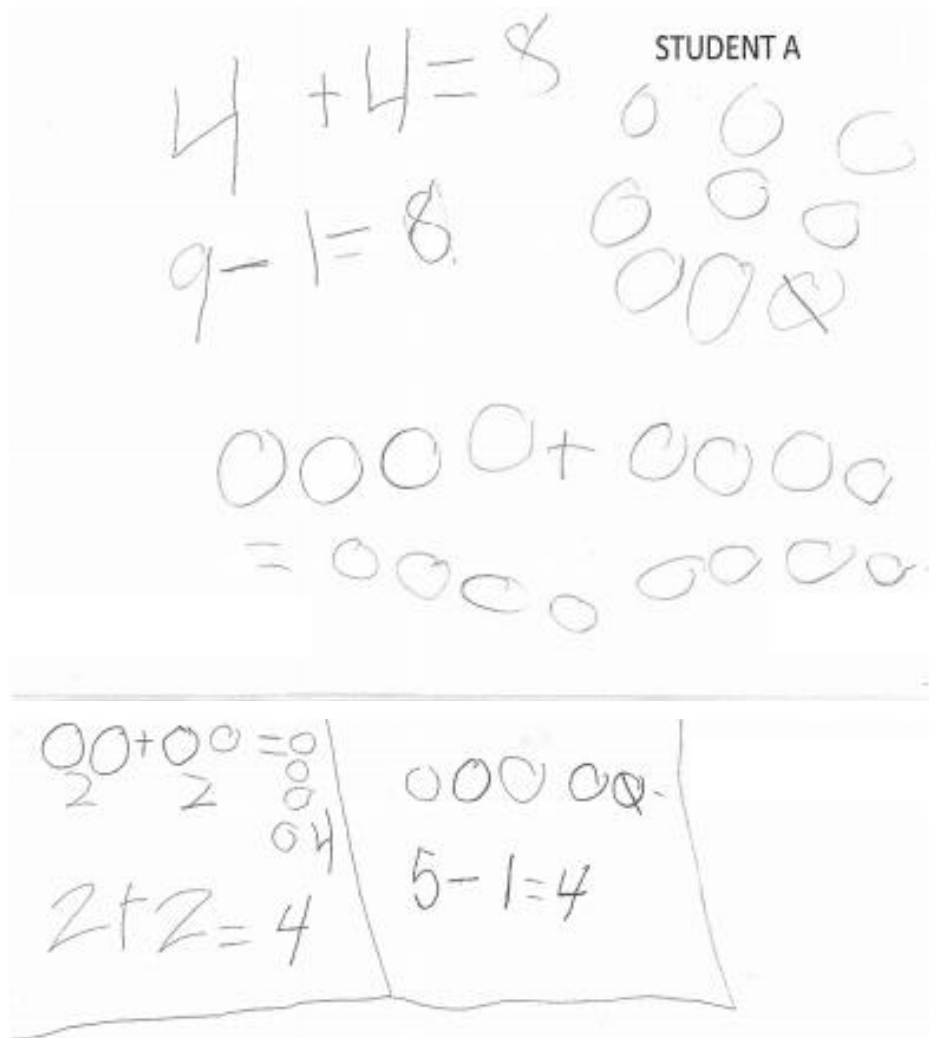 STUDENT A
4 + 4 = 8
9 - 1 = 8
+
=
+ =
2 2
4
2 + 2 = 4
5 - 1 = 4